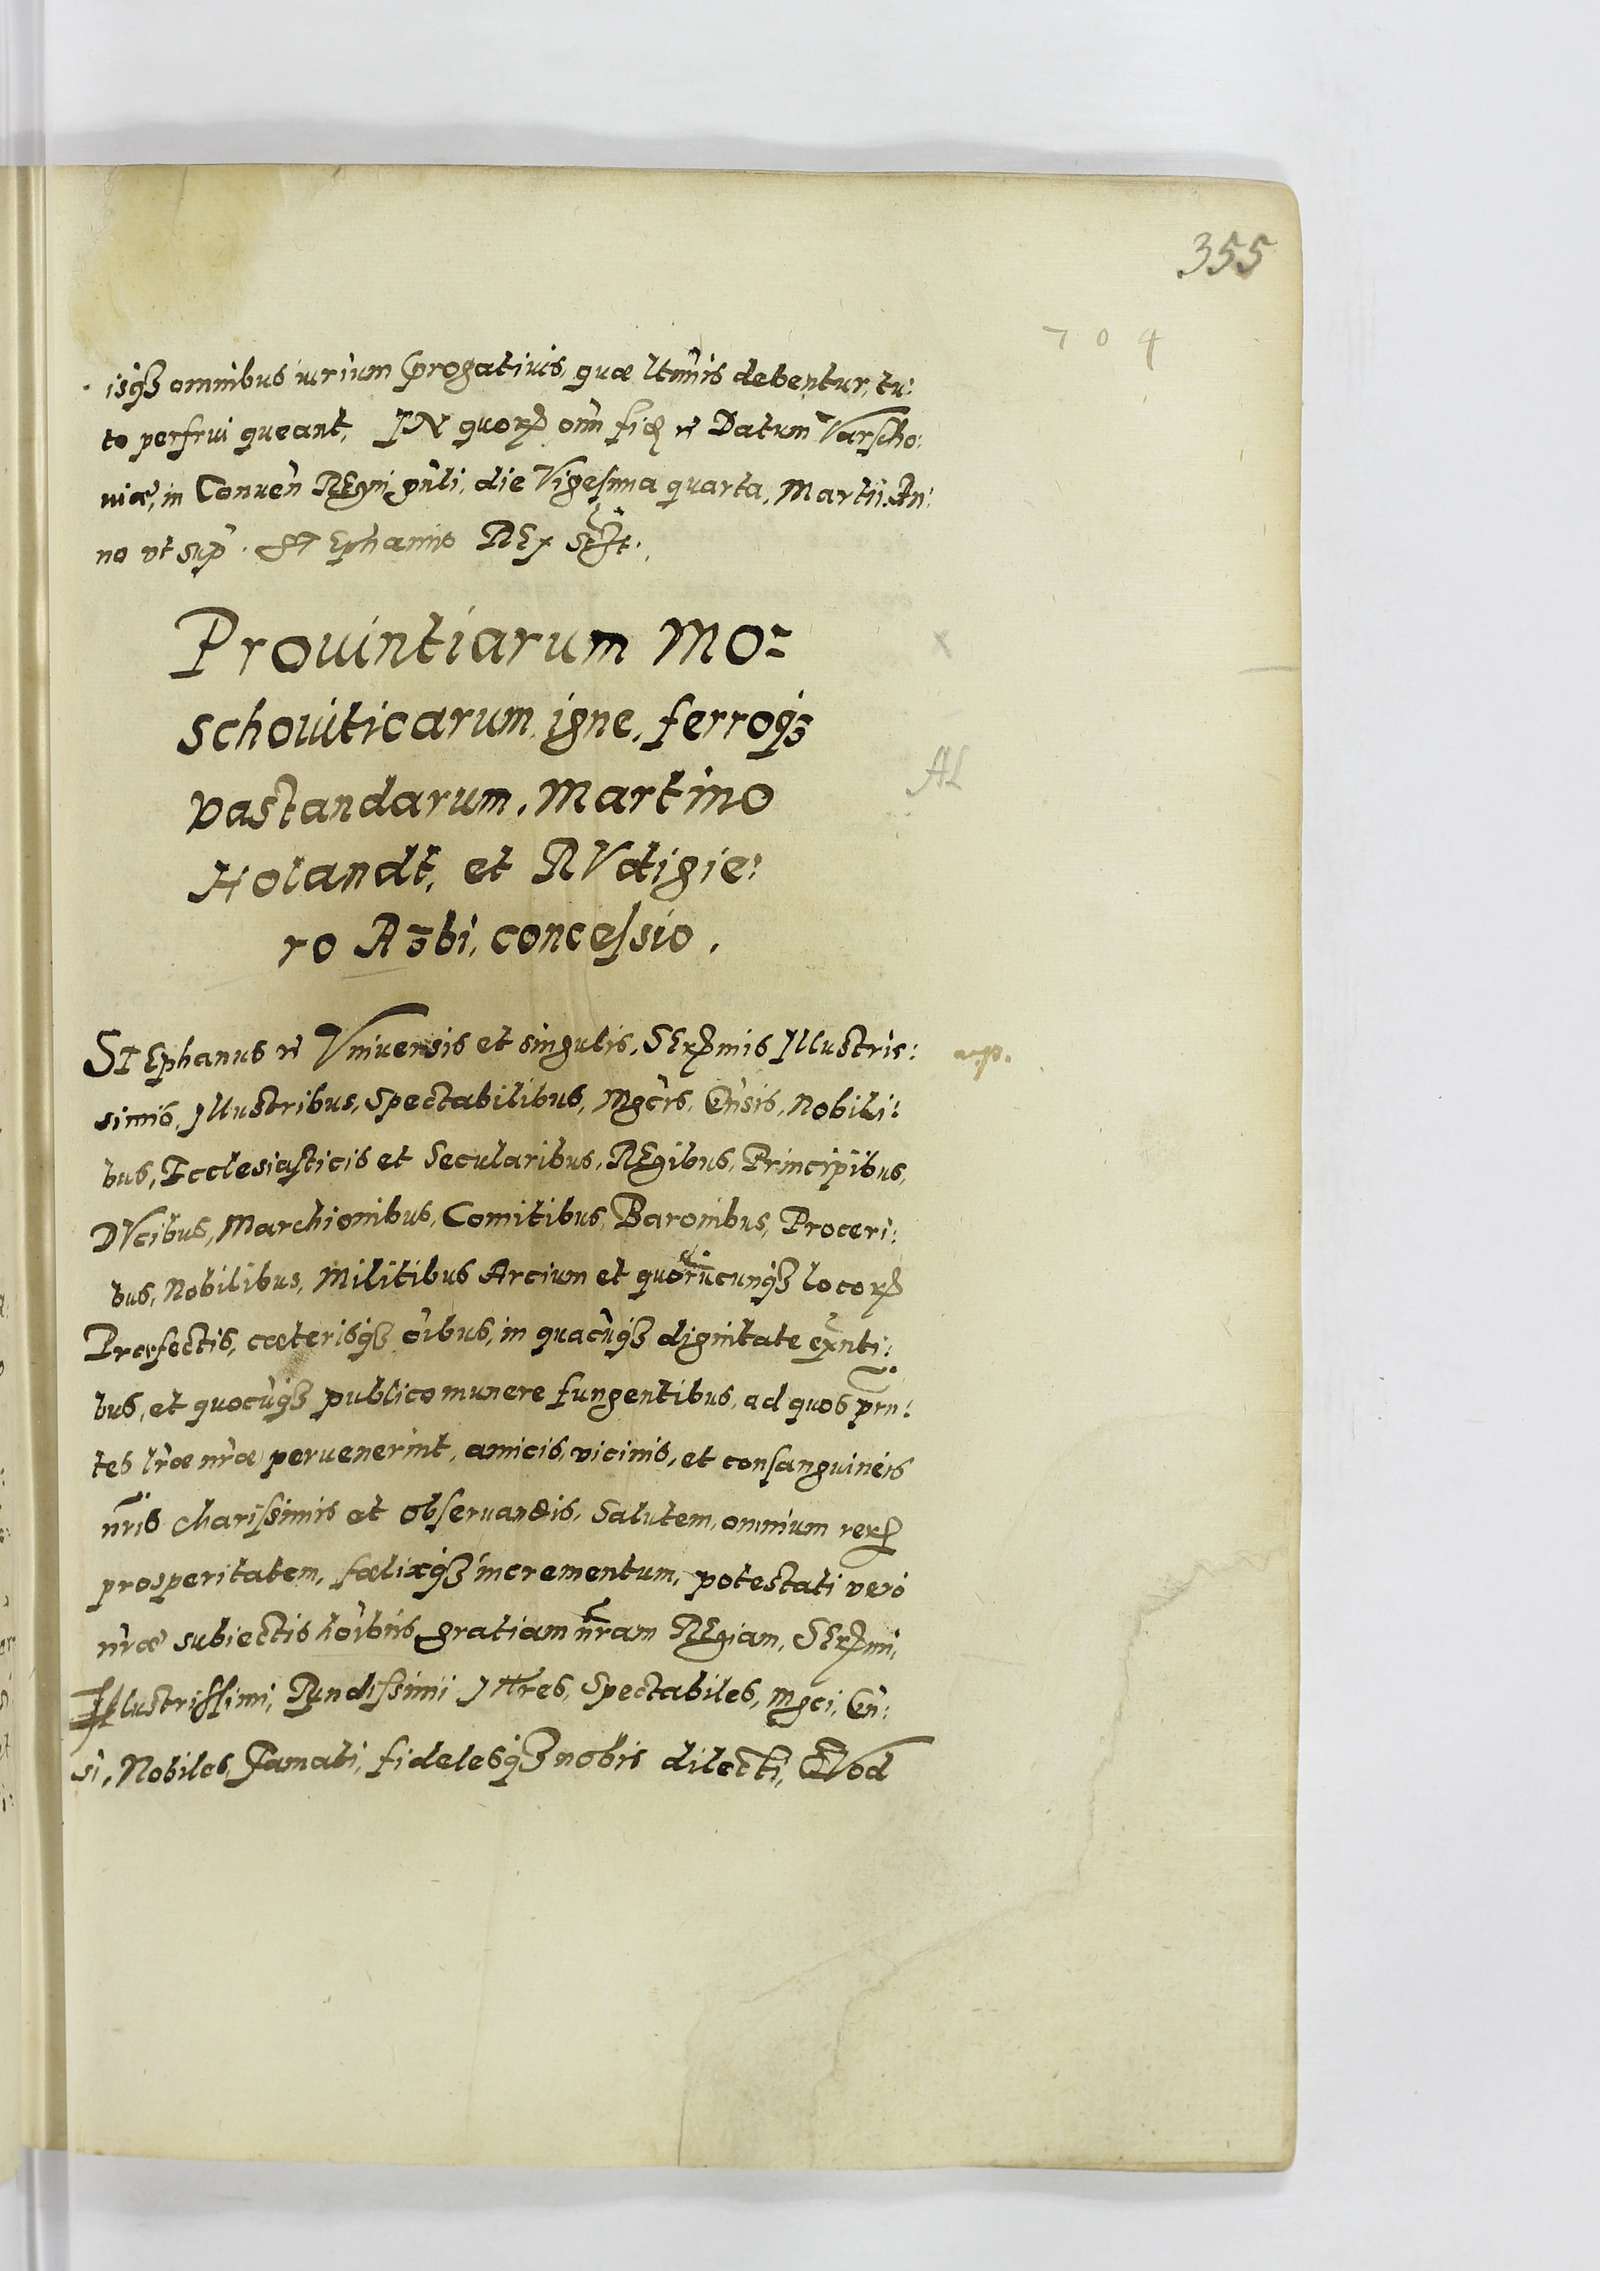 355
704
isq₃ omnibus iurium prǫgatiuis, quæ ltimis debentur, tu:
to perfrui queant, IN quorꝝ oim fid̨ etc Datum Varscho:
uiæ, in Conuen REgni gnli, die Vigesima quarta, Martii An:
no vt sup. STEphanus REx sst.
Prouintiarum Mo=
schouiticarum, igne, ferroq₃
vastandarum, Martino
Holandt, et RVdigie:
ro Azbi, concessio.
STEphanus etc Vniuersis et singulis, SErꝝmis Illustris:
simis, Illustribus, Spectabilibus, Mgcis, Gnsis, Nobili:
bus, Ecclesiasticis et Secularibus, REgibus, Principibus,
DVcibus, Marchionibus, Comitibus, Baronibus, Proceri:
bus, Nobilibus, Militibus Arcium et quorucunq₃ locorꝝ
Præfectis, cæterisq₃ oibus, in quacuq₃ dignitate exnti:
bus, et quocuq₃ publico munere fungentibus, ad quos prn:
tes lræ nræ peruenerint, amicis, vicinis, et consanguineis
nris charissimis et obseruandis, Salutem, omnium rerꝝ
prosperitatem, fœlixq₃ incrementum, potestati vero
nræ subiectis hoibus gratiam nram REgiam, SErꝝmi,
Illustrissimi, Rndissimi Illres, Spectabiles, Mgci, Gn:
si, Nobiles, Famati, fidelesq₃ nobis dilecti, QVod